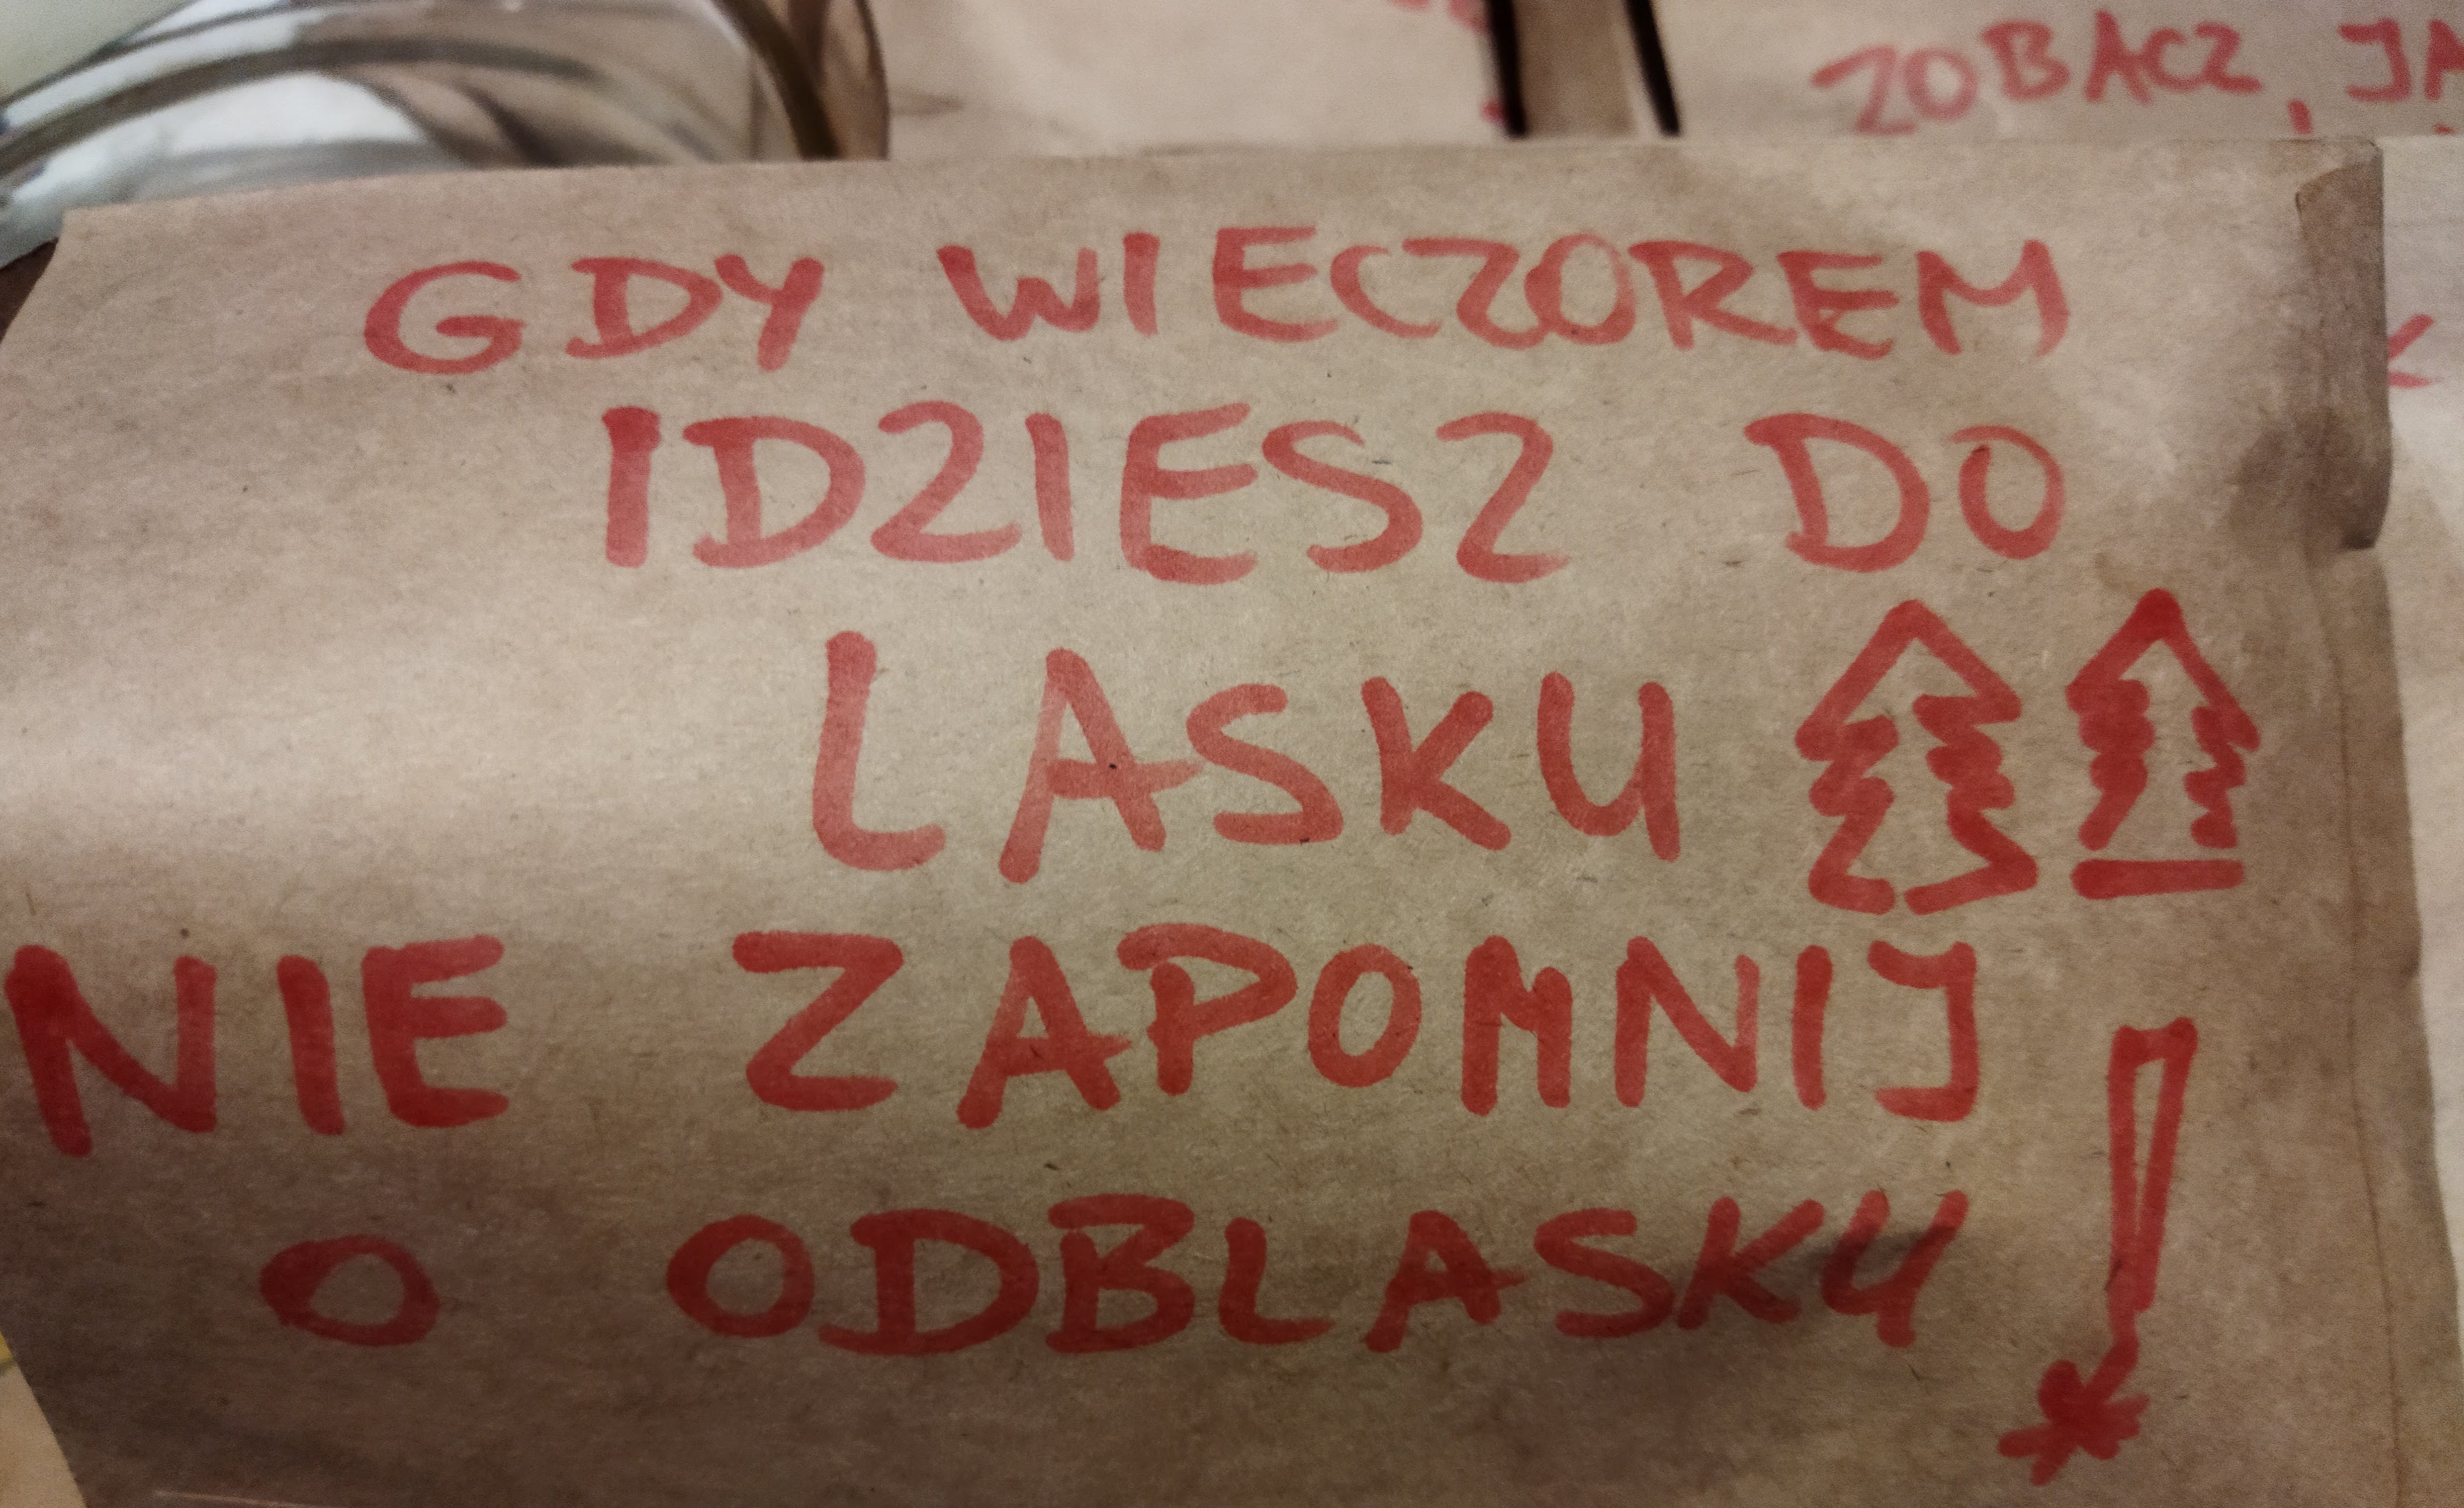 ZOBACZ, JA
GDY WIECZOREM
IDZIESZ DO
LASKU
NIE ZAPOMNIJ
O ODBLASKU!